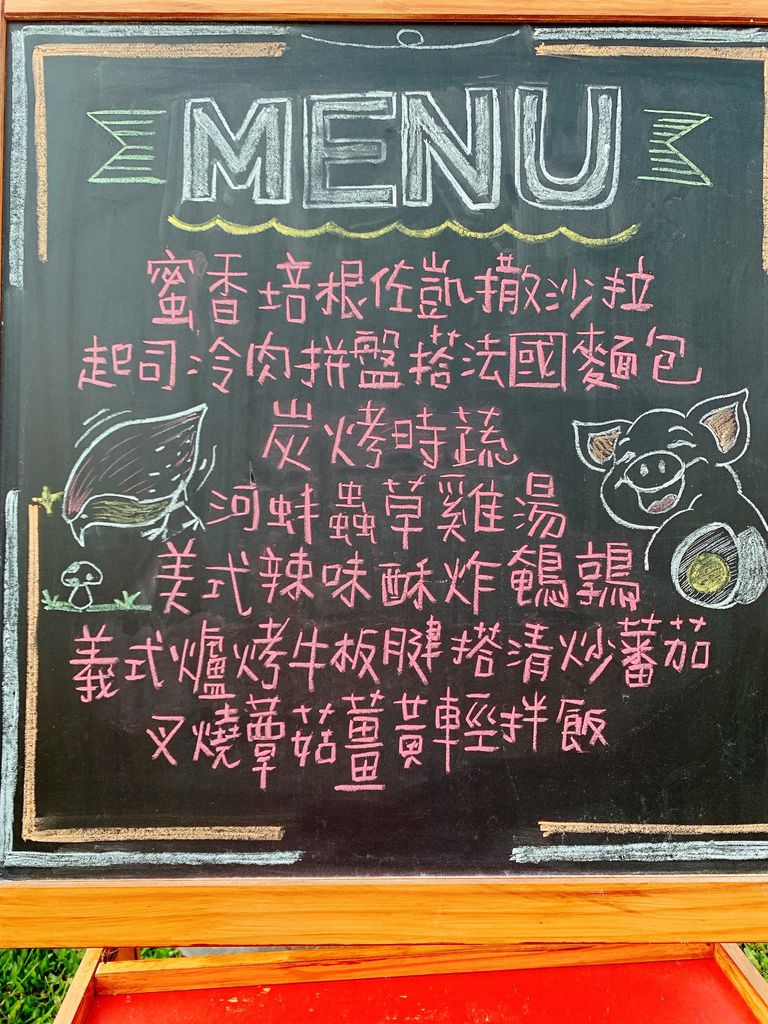 MENU
蜜香培根佐凱撒沙拉
起司冷肉拼盤搭法國麵包
炭烤時蔬
河蚌蟲草雞湯
美式辣味酥炸鵪鶉
義式爐烤牛板腱搭清炒蕃茄
叉燒蕈菇薑黃輕拌飯